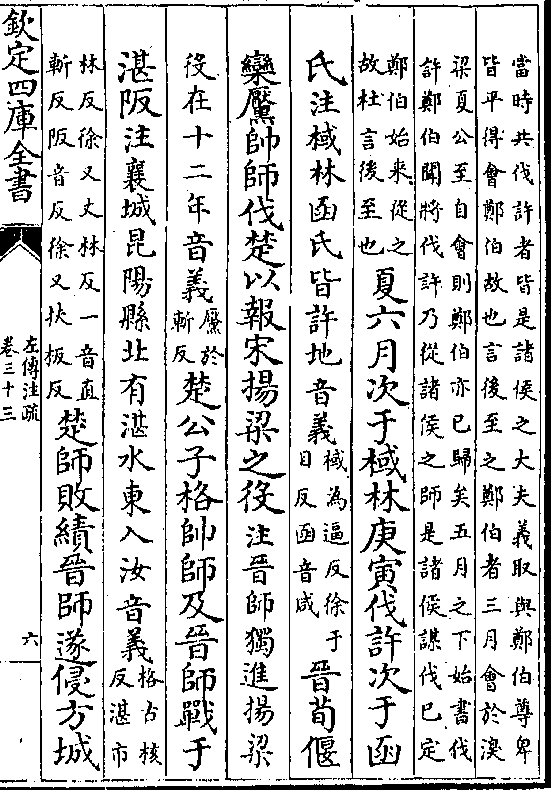 當時共伐許者皆是諸侯之大夫義取與鄭伯尊卑
皆平得會鄭伯故也言後至之鄭伯者三月會於湨
梁夏公至自會則鄭伯亦已歸矣五月之下始書伐
許鄭伯聞將伐許乃從諸侯之師是諸侯謀伐已定
鄭伯始來從之
故杜言後至也
夏六月次于棫林庚寅伐許次于函
氏注棫林函氏皆許地音義
棫為逼反徐于
目反函音咸
晉荀偃
欒黶帥師伐楚以報宋揚梁之役注晉師獨進揚梁
役在十二年音義
黶於
斬反
楚公子格帥師及晉師戰于
湛阪注襄城昆陽縣北有湛水東入汝音義
格古核
反湛市
林反徐又丈林反一音直
斬反阪音反徐又扶板反
楚師敗績晉師遂侵方城
欽定四庫全書
左傳注疏
卷三十三
六